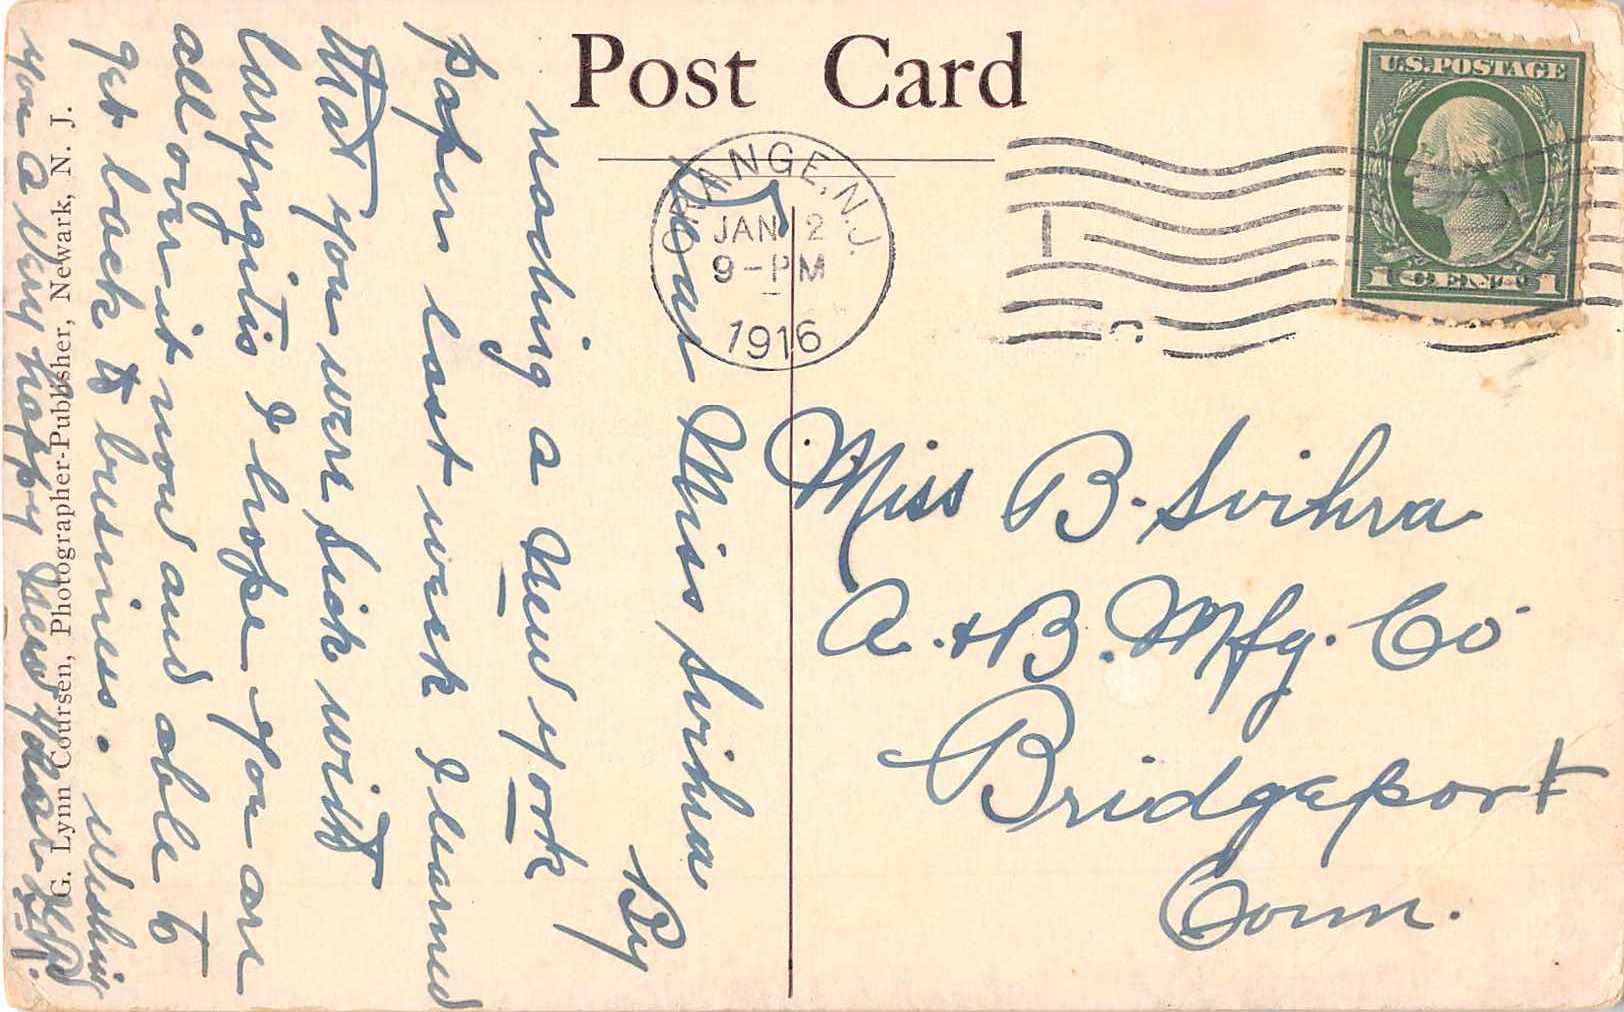 Post Card
U.S. POSTAGE
ORANGE, N.J.
JAN 2
9-PM
1916
1
Dear Miss Svihra
By
reading a New York
paper last week I learned
that you were sick with
laryngitis I hope you are
all over it now and able to
get back to business. Wishing
you a very happy New Year
Miss B. Svihra
A. & B. Mfg. Co
Bridgeport
Conn.
G. Lynn Coursen, Photographer-Publisher, Newark, N. J.